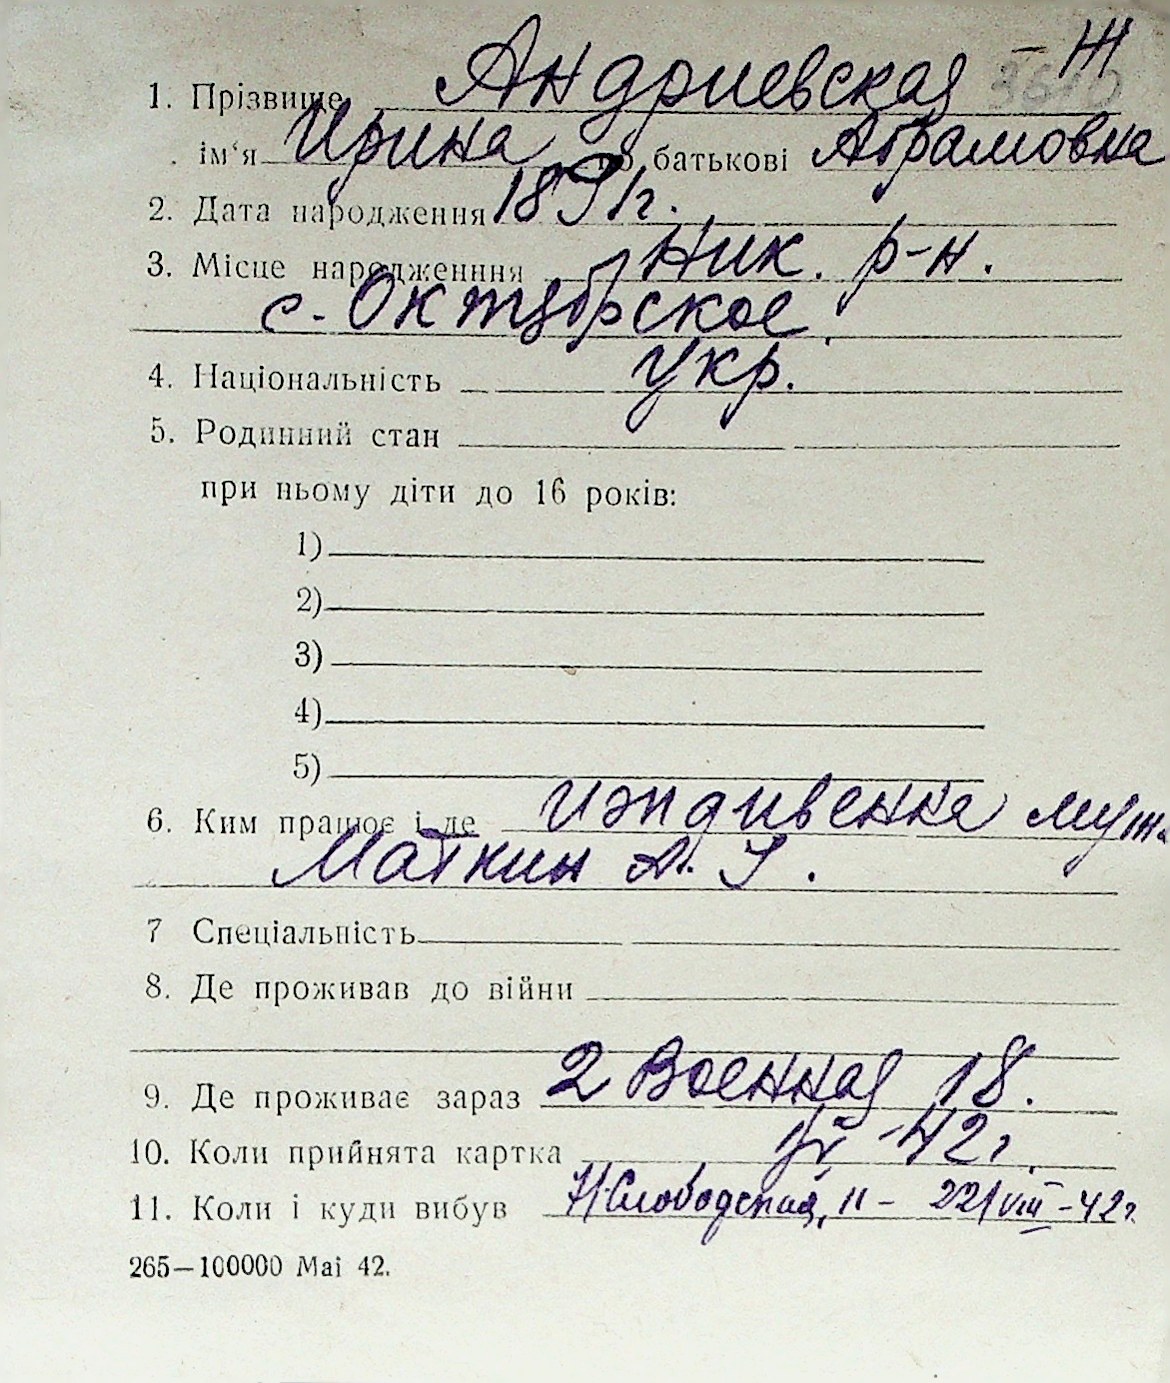 1. Прізвище Андриевская – Ж
ім'я Ирина по батькові Абрамовна
2. Дата народження 1891г.
3. Місце народженння Ник. р-н.
с. Октубрское.
4. Національність укр.
5. Родинний стан
при ньому діти до 16 років:
1)
2)
3)
4)
5)
6. Ким працює і де иждивенка мужа
Маткин А.
7 Спеціальність
8. Де проживав до війни
9. Де проживає зараз 2 Военная 18.
10. Коли прийнята картка -42г.
11. Коли і куди вибув Н/Слободская, 11 – 22/VIII – 42г.
265—100000 Маі 42.